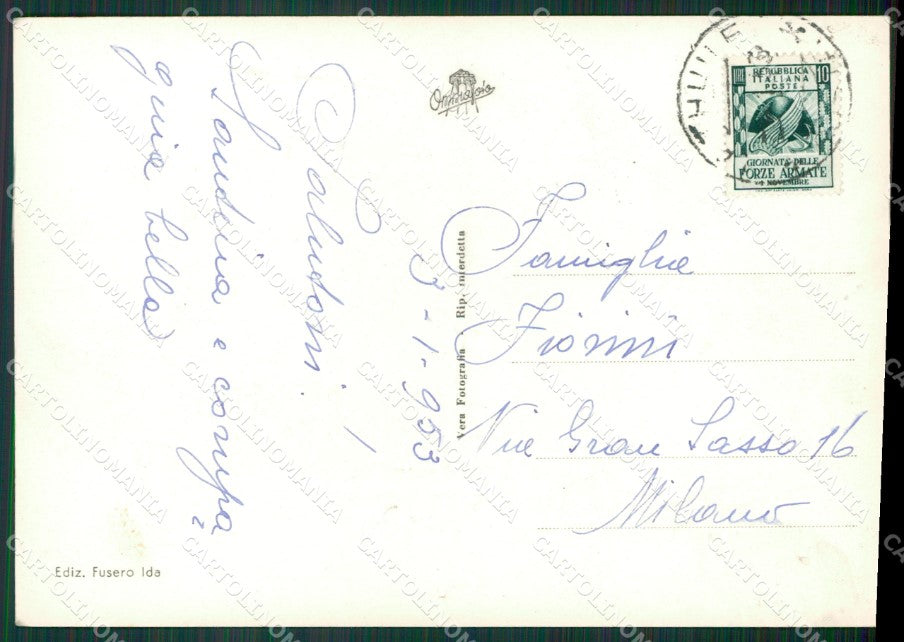 Saludoni!
Sandrina e compa
gnia bella
3-1-953
Vera Fotografia - Rip. interdetta
Ornitofoto
REPUBBLICA
ITALIANA
POSTE
LIRE 10
GIORNATA DELLE
FORZE ARMATE
4 NOVEMBRE
Famiglia
Fiorini
Via Gran Sasso 16
Milano
Ediz. Fusero Ida
CARTOLINOMANIA